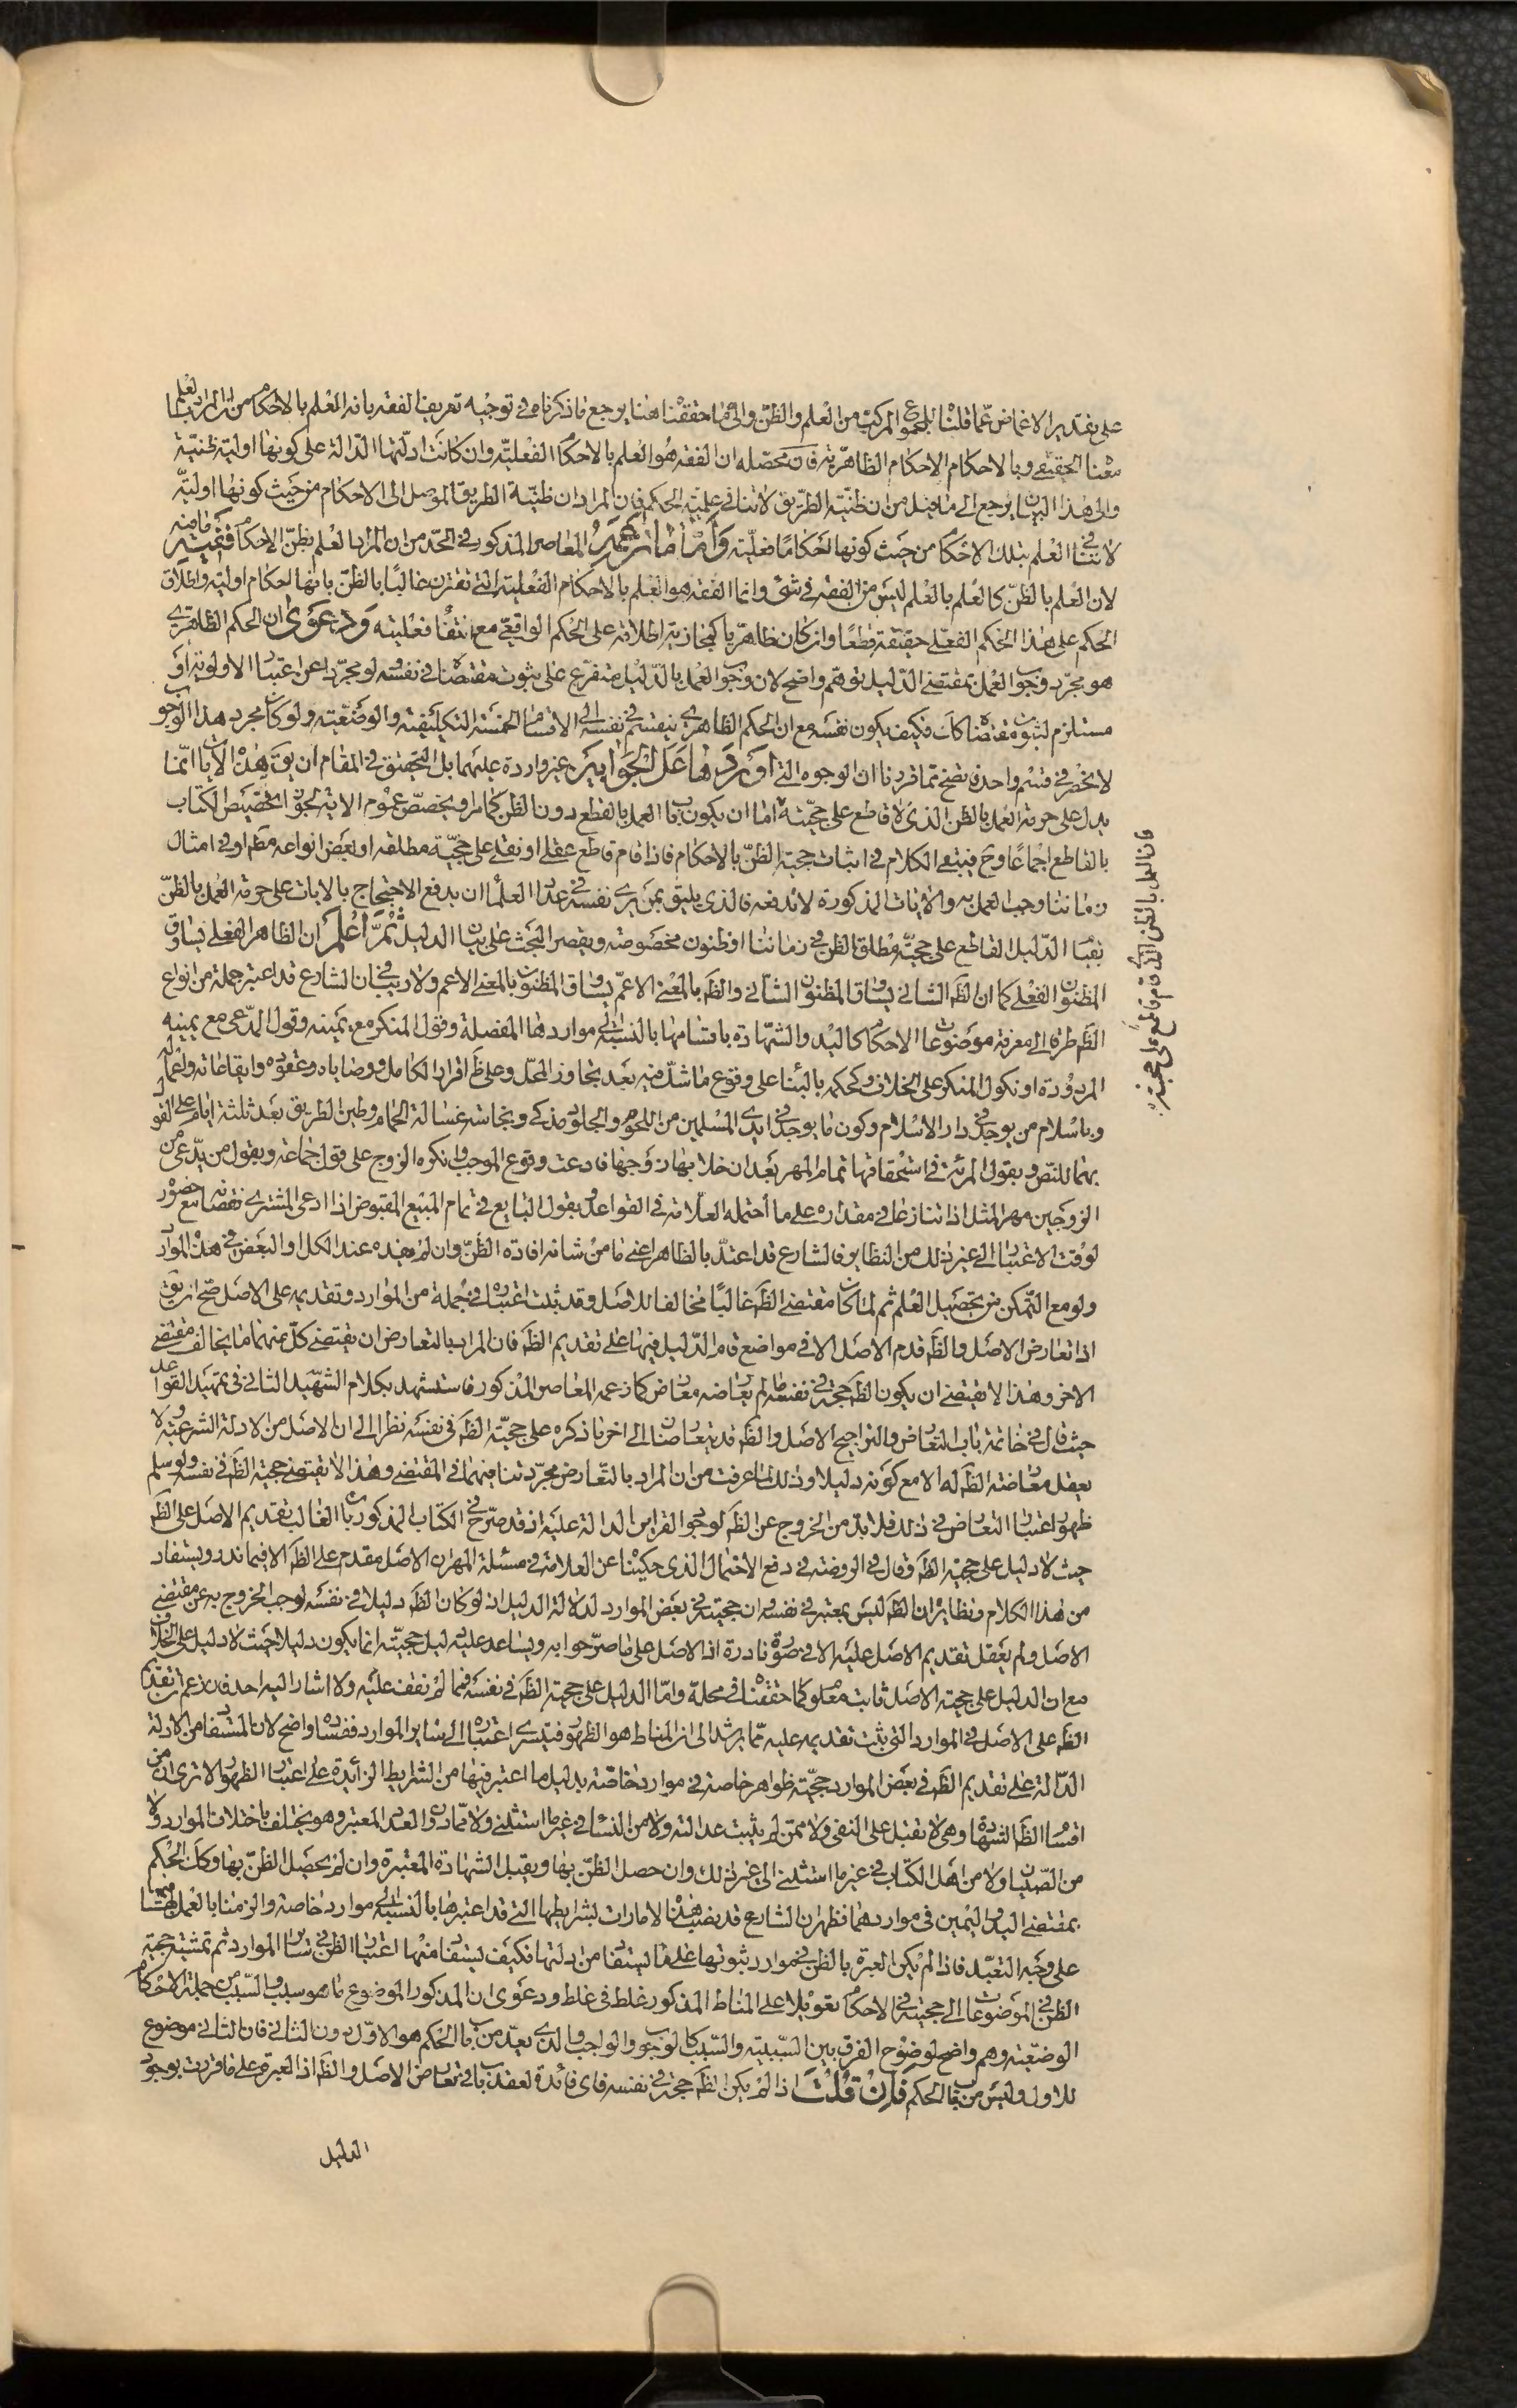 على تقدير الاغماض عما قلنا بلغو المركب من العلم والظن والى ما حققنا هنا يرجع ما ذكرناه في توجيه تعريف الفقه بانه العلم بالاحكام من ان المراد بالعلم
معناه الحقيقي وبالاحكام الاحكام الظاهرية فان محصله ان الفقه هو العلم بالاحكام الفعلية وان كانت ادلتها الدالة على كونها اولية ظنية
والى هذا البيان يرجع الى ما قيل من ان ظنية الطريق لا تنافي علمية الحكم فان المراد ان ظنية الطريق الموصل الى الاحكام من حيث كونها اولية
لا تنافي العلم بتلك الاحكام من حيث كونها احكاما فعلية واما ما زعمه المعاصر المذكور في الحد من ان المراد العلم بظن الاحكام ففيه ما فيه
لان العلم بالظن كالعلم بالعلم ليس من الفقه في شئ وانما الفقه هو العلم بالاحكام الفعلية التي تقترن غالبا بالظن بانها احكام اولية واطلاق
الحكم على هذا الحكم الفعلي حقيقة قطعا وان كان ظاهريا كمجازية اطلاقه على الحكم الواقعي مع انتفاء فعليته ودعوى ان الحكم الظاهري
هو مجرد وجوب العمل بمقتضى الدليل توهم واضح لان وجوب العمل بالدليل متفرع على ثبوت مقتضاه في نفسه لو مجردا عن اعتبار الاولوية او
مستلزم لثبوت مقتضاه كك فكيف يكون نفسه مع ان الحكم الظاهري ينقسم في نفسه الى الاقسام الخمسة التكليفية والوضعية ولو كان مجرد هذا الوجوب
لانحصر في قسم واحد فتضح مما قررنا ان الوجوه التي اوردها على الجوابين غير واردة عليهما بل التحقيق في المقام ان يق هذه الايات انما
يدل على حرمة العمل بالظن الذي لا قاطع على حجيته اما ان يكون باب العمل بالقطع دون الظن كما مر او بخصص عموم الاية لجواز تخصيص الكتاب
بالقاطع اجماعا وح فينبغي الكلام في اثبات حجية الظن بالاحكام فاذا قام قاطع عقلي او نقلي على حجية مطلقه او بعض انواعه مطلقا او في امثال
زماننا وجب العمل به والايات المذكورة لا تدفعه فالذي يليق بمن يرى نفسه في عداد العلماء ان يدفع الاحتجاج بالايات على حرمة العمل بالظن
بقيام الدليل القاطع على حجية مطلق الظن في زماننا او ظنون مخصوصة ويقصر البحث على بيان الدليل ثم اعلم ان الظاهر الفعلي يساوق
المظنون الفعلي كما ان الظ الشاني يساوق المظنون الشاني والظ بالمعنى الاعم يساوق المظنون بالمعنى الاعم ولا ريب في ان الشارع قد اعتبر جملة من انواع
الظ طرقا الى معرفة موضوعات الاحكام كاليد والشهادة باقسامها بالنسبة الى مواردها المفصلة وقول المنكر مع يمينه وقول المدعي مع يمينه
المردودة او نكول المنكر على الخلاف وكحكمه بالبناء على وقوع ما شك فيه بعد تجاوز المحل وعلى ظ اقرار الكامل ووصاياه وعقوده وايقاعاته واعماله
وباسلام من يوجد في دار الاسلام وكون ما يوجد في ايدي المسلمين من اللحوم والجلود مذكى وبنجاسة غسالة الحمام وطين الطريق بعد ثلثة ايام على القول
بهما للنص وبقول المرئة في استحقاقها تمام المهر بعد ان خلا بها زوجها فادعت وقوع الموجب وانكره الزوج على قول جماعة وبقول من يدعي من
الزوجين مهر المثل اذا تنازعا في مقداره على ما احتمله العلامة في القواعد وبقول البايع في تمام المبيع المقبوض اذا ادعى المشتري نقصانه مع حضور
لوقت الاعتبار الى غير ذلك من النظاير فالشارع قد اعتد بالظاهر اعني ما من شانه افادة الظن وان لم يفده عند الكل او البعض في هذه الموارد
ولو مع التمكن من تحصيل العلم ثم لما كان مقتضى الظ غالبا مخالفا للاصل وقد ثبت اعتباره في جملة من الموارد وتقديمه على الاصل صح ان يق
اذا تعارض الاصل والظ قدم الاصل الا في مواضع قام الدليل فيها على تقديم الظ فان المراد بالتعارض ان يقتضي كل منهما ما يخالف مقتضى
الاخر وهذا لا يقتضي ان يكون الظ حجة في نفسه ما لم يعارضه معارض كما زعمه المعاصر المذكور فاستشهد بكلام الشهيد الثاني في تمهيد القواعد
حيث قال في خاتمة باب التعارض والتراجيح الاصل والظ قد يتعارضان الى اخر ما ذكره على حجية الظ في نفسه نظرا الى ان الاصل من الادلة الشرعية ولا
يعقل معارضة الظ له الا مع كونه دليلا وذلك لما عرفت من ان المراد بالتعارض مجرد تنافيهما في المقتضى وهذا لا يقتضي حجية الظ في نفسه ولو سلم
ظهور اعتبار التعارض في ذلك فلا بد من الخروج عن الظ لوجود القراين الدالة عليه اذ قد صرح في الكتاب المذكور بان الغالب تقديم الاصل على الظ
حيث لا دليل على حجية الظ وقال في الروضة في دفع الاحتمال الذي حكيناه عن العلامة في مسئلة المهر ان الاصل مقدم على الظ الا فيما ندر ويستفاد
من هذا الكلام ونظايره ان الظ ليس بمعتبر في نفسه وان حجيته في بعض الموارد لدلالة الدليل اذ لو كان الظ دليلا في نفسه لوجب الخروج به عن مقتضى
الاصل ولم يعقل تقديم الاصل عليه الا في صورة نادرة اذ الاصل على ما صرحوا به ويساعد عليه دليل حجيته انما يكون دليلا حيث لا دليل على الخلاف
مع ان الدليل على حجية الاصل ثابت معلوم كما حققناه في محله واما الدليل على حجية الظ في نفسه فمما لم نقف عليه ولا اشار اليه احد فان زعم ان تقديم
الظ على الاصل في الموارد التي يثبت تقديمه عليه مما يرشد الى ان المناط هو الظهور فيسري اعتباره الى ساير الموارد ففساده واضح لان المستفاد من الادلة
الدالة على تقديم الظ في بعض الموارد حجية ظواهر خاصة في موارد خاصة بدليل ما اعتبر فيها من الشرايط الزائدة على اعتبار الظهور الا ترى ان من
اقسام الظ الشهادة وهي لا تقبل على النفي ولا ممن لم يثبت عدالته ولا من النساء في غير ما استثني ولا مما دون العدد المعتبر وهو يختلف باختلاف الموارد ولا
من الصبيان ولا من اهل الكتاب في غير ما استثني الى غير ذلك وان حصل الظن بها ويقبل الشهادة المعتبرة وان لم يحصل الظن بها وكك الحكم
بمقتضى اليد واليمين في مواردهما فظهر ان الشارع قد نصب هذه الامارات بشرايطها التي قد اعتبرها بالنسبة الى موارد خاصة والزمنا بالعمل بمقتضاها
على وجه التعبد فاذا لم يكن العبرة بالظن في موارد ثبوتها على ما يستفاد من ادلتها فكيف يستفاد منها اعتبار الظن في ساير الموارد ثم تمشية حجية
الظن في الموضوعات الى حجيته في الاحكام تعويلا على المناط المذكور غلط في غلط ودعوى ان المذكور الموضوع ما هو سبب والسبب من جملة الاحكام
الوضعية وهم واضح لوضوح الفرق بين السببية والسبب كالوجوب والواجب والذي يعد من باب الحكم هو الاول دون الثاني فان الثاني موضوع
للاول وليس من باب الحكم فان قلت اذا لم يكن الظ حجة في نفسه فاي فائدة لعقد باب في تعارض الاصل والظ اذ العبرة على ما قررت بوجود
الدليل
فان العمل بالظن الذي قام قاطع على حجيته